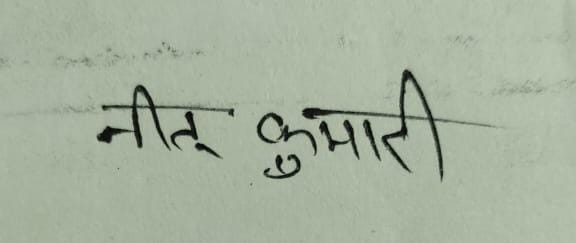 नीतू कुमारी